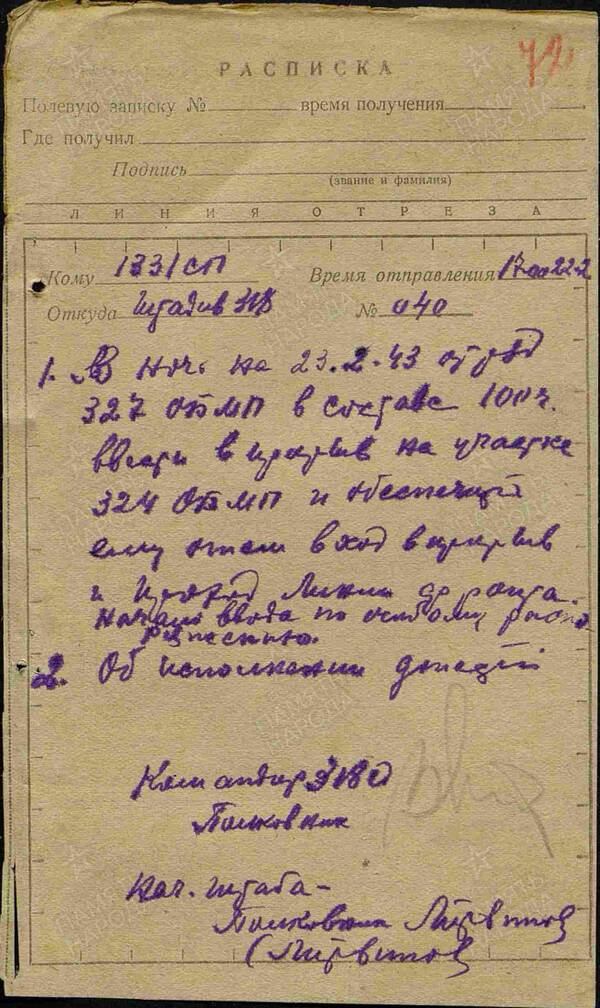 72
РАСПИСКА
Полевую записку № время получения
Где получил
Подпись
(звание и фамилия)
ЛИНИЯ ОТРЕЗА
Кому 1331 СП Время отправления 17.00 22.2
Откуда Штадив 318 № 040
1. В ночь на 23.2.43 отряд
327 ОБМП в составе 100 ч.
ввести в прорыв на участке
324 ОБМП и обеспечить
ему вход в прорыв
и проход линии фронта.
Начало ввода по особому распо
ряжению.
2. Об исполнении донести
Командир 318 СД
Полковник
Нач. штаба -
Полковник
ПАМЯТЬ НАРОДА